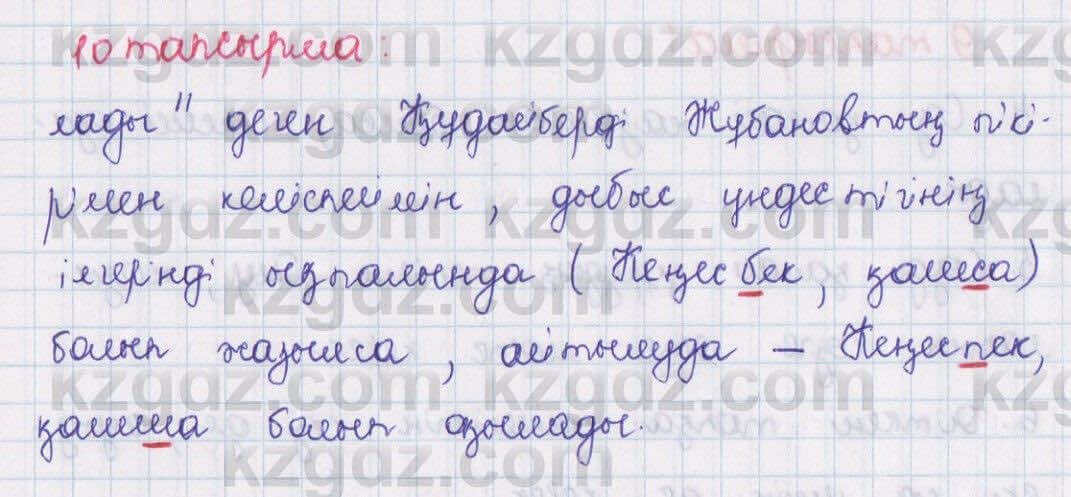 10 тапсырма:
лады" деген Құдайберді Жұбановтың пікі-
рімен келіспеймін, дыбыс үндестігінің
ілгерінді ықпалында (Кеңесбек, қашса)
болып жазылса, айтылуда – Кеңеспек,
қашша болып оқылады.
kzgdz.com